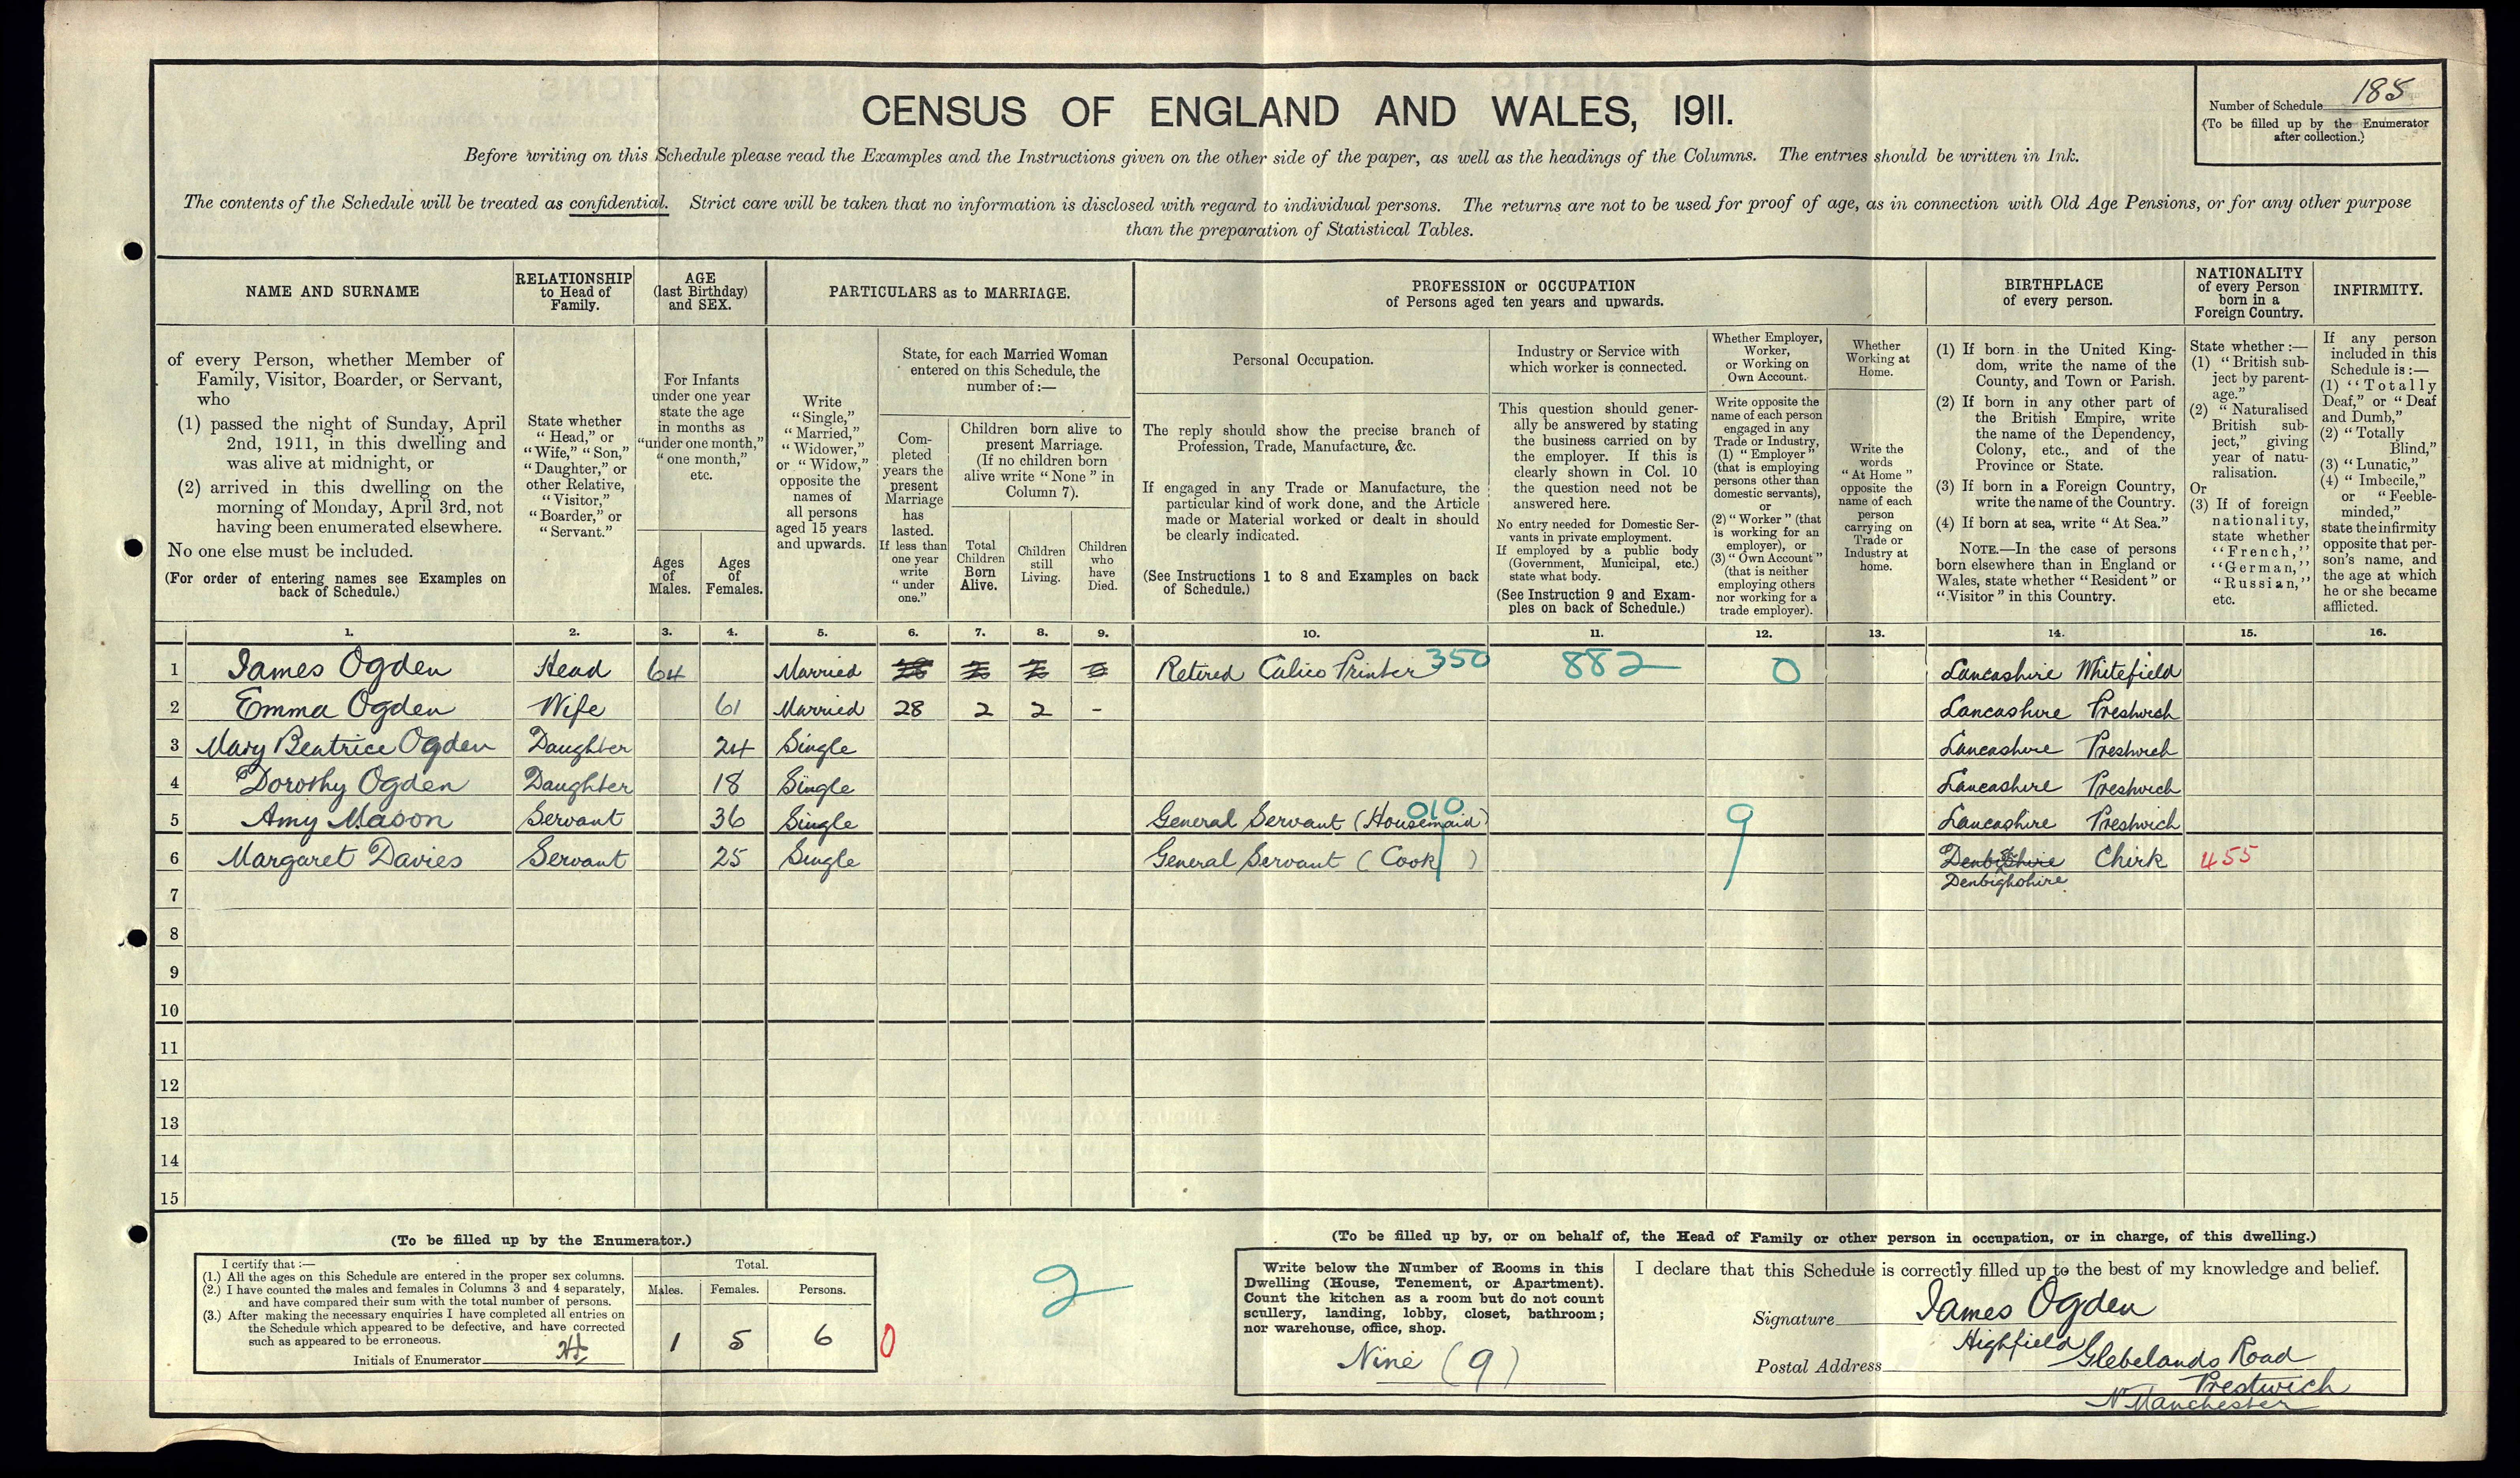 CENSUS OF ENGLAND AND WALES, 1911.
Number of Schedule 185
(To be filled up by the Enumerator
after collection.)
Before writing on this Schedule please read the Examples and the Instructions given on the other side of the paper, as well as the headings of the Columns. The entries should be written in Ink.
The contents of the Schedule will be treated as confidential. Strict care will be taken that no information is disclosed with regard to individual persons. The returns are not to be used for proof of age, as in connection with Old Age Pensions, or for any other purpose
than the preparation of Statistical Tables.
NAME AND SURNAME
of every Person, whether Member of
Family, Visitor, Boarder, or Servant,
who
(1) passed the night of Sunday, April
2nd, 1911, in this dwelling and
was alive at midnight, or
(2) arrived in this dwelling on the
morning of Monday, April 3rd, not
having been enumerated elsewhere.
No one else must be included.
(For order of entering names see Examples on
back of Schedule.)
RELATIONSHIP
to Head of
Family.
State whether
"Head," or
"Wife," "Son,"
"Daughter," or
other Relative,
"Visitor,"
"Boarder," or
"Servant."
AGE
(last Birthday)
and SEX.
For Infants
under one year
state the age
in months as
"under one month,"
"one month,"
etc.
Ages
of
Males.
Ages
of
Females.
PARTICULARS as to MARRIAGE.
Write
"Single,"
"Married,"
"Widower,"
or "Widow,"
opposite the
names of
all persons
aged 15 years
and upwards.
State, for each Married Woman
entered on this Schedule, the
number of:—
Com-
pleted
years the
present
Marriage
has
lasted.
If less than
one year
write
"under
one."
Children born alive to
present Marriage.
(If no children born
alive write "None" in
Column 7).
Total
Children
Born
Alive.
Children
still
Living.
Children
who
have
Died.
PROFESSION or OCCUPATION
of Persons aged ten years and upwards.
Personal Occupation.
The reply should show the precise branch of
Profession, Trade, Manufacture, &c.
If engaged in any Trade or Manufacture, the
particular kind of work done, and the Article
made or Material worked or dealt in should
be clearly indicated.
(See Instructions 1 to 8 and Examples on back
of Schedule.)
Industry or Service with
which worker is connected.
This question should gener-
ally be answered by stating
the business carried on by
the employer. If this is
clearly shown in Col. 10
the question need not be
answered here.
No entry needed for Domestic Ser-
vants in private employment.
If employed by a public body
(Government, Municipal, etc.)
state what body.
(See Instruction 9 and Exam-
ples on back of Schedule.)
Whether Employer,
Worker,
or Working on
Own Account.
Write opposite the
name of each person
engaged in any
Trade or Industry,
(1) "Employer"
(that is employing
persons other than
domestic servants),
or
(2) "Worker" (that
is working for an
employer), or
(3) "Own Account"
(that is neither
employing others
nor working for a
trade employer).
Whether
Working at
Home.
Write the
words
"At Home"
opposite the
name of each
person
carrying on
Trade or
Industry at
home.
BIRTHPLACE
of every person.
(1) If born in the United King-
dom, write the name of the
County, and Town or Parish.
(2) If born in any other part of
the British Empire, write
the name of the Dependency,
Colony, etc., and of the
Province or State.
(3) If born in a Foreign Country,
write the name of the Country.
(4) If born at sea, write "At Sea."
NOTE.—In the case of persons
born elsewhere than in England or
Wales, state whether "Resident" or
"Visitor" in this Country.
NATIONALITY
of every Person
born in a
Foreign Country.
State whether:—
(1) "British sub-
ject by parent-
age."
(2) "Naturalised
British sub-
ject," giving
year of natu-
ralisation.
Or
(3) If of foreign
nationality,
state whether
"French,"
"German,"
"Russian,"
etc.
INFIRMITY.
If any person
included in this
Schedule is:—
(1) "Totally
Deaf," or "Deaf
and Dumb,"
(2) "Totally
Blind,"
(3) "Lunatic,"
(4) "Imbecile,"
or "Feeble-
minded,"
state the infirmity
opposite that per-
son's name, and
the age at which
he or she became
afflicted.
1. 2. 3. 4. 5. 6. 7. 8. 9. 10. 11. 12. 13. 14. 15. 16.
1 James Ogden Head 64 Married Retired Calico Printer 350 882 0 Lancashire Whitefield
2 Emma Ogden Wife 61 Married 28 2 2 - Lancashire Prestwich
3 Mary Beatrice Ogden Daughter 24 Single Lancashire Prestwich
4 Dorothy Ogden Daughter 18 Single Lancashire Prestwich
5 Amy Mason Servant 36 Single General Servant (Housemaid) 010 9 Lancashire Prestwich
6 Margaret Davies Servant 25 Single General Servant (Cook) Chirk 455
Denbighshire
7
8
9
10
11
12
13
14
15
(To be filled up by the Enumerator.)
I certify that:—
(1.) All the ages on this Schedule are entered in the proper sex columns.
(2.) I have counted the males and females in Columns 3 and 4 separately,
and have compared their sum with the total number of persons.
(3.) After making the necessary enquiries I have completed all entries on
the Schedule which appeared to be defective, and have corrected
such as appeared to be erroneous.
Initials of Enumerator
Total.
Males. Females. Persons.
1 5 6 0
2
(To be filled up by, or on behalf of, the Head of Family or other person in occupation, or in charge, of this dwelling.)
Write below the Number of Rooms in this
Dwelling (House, Tenement, or Apartment).
Count the kitchen as a room but do not count
scullery, landing, lobby, closet, bathroom;
nor warehouse, office, shop.
Nine (9)
I declare that this Schedule is correctly filled up to the best of my knowledge and belief.
Signature James Ogden
Postal Address Highfield Glebelands Road
Prestwich
N. Manchester